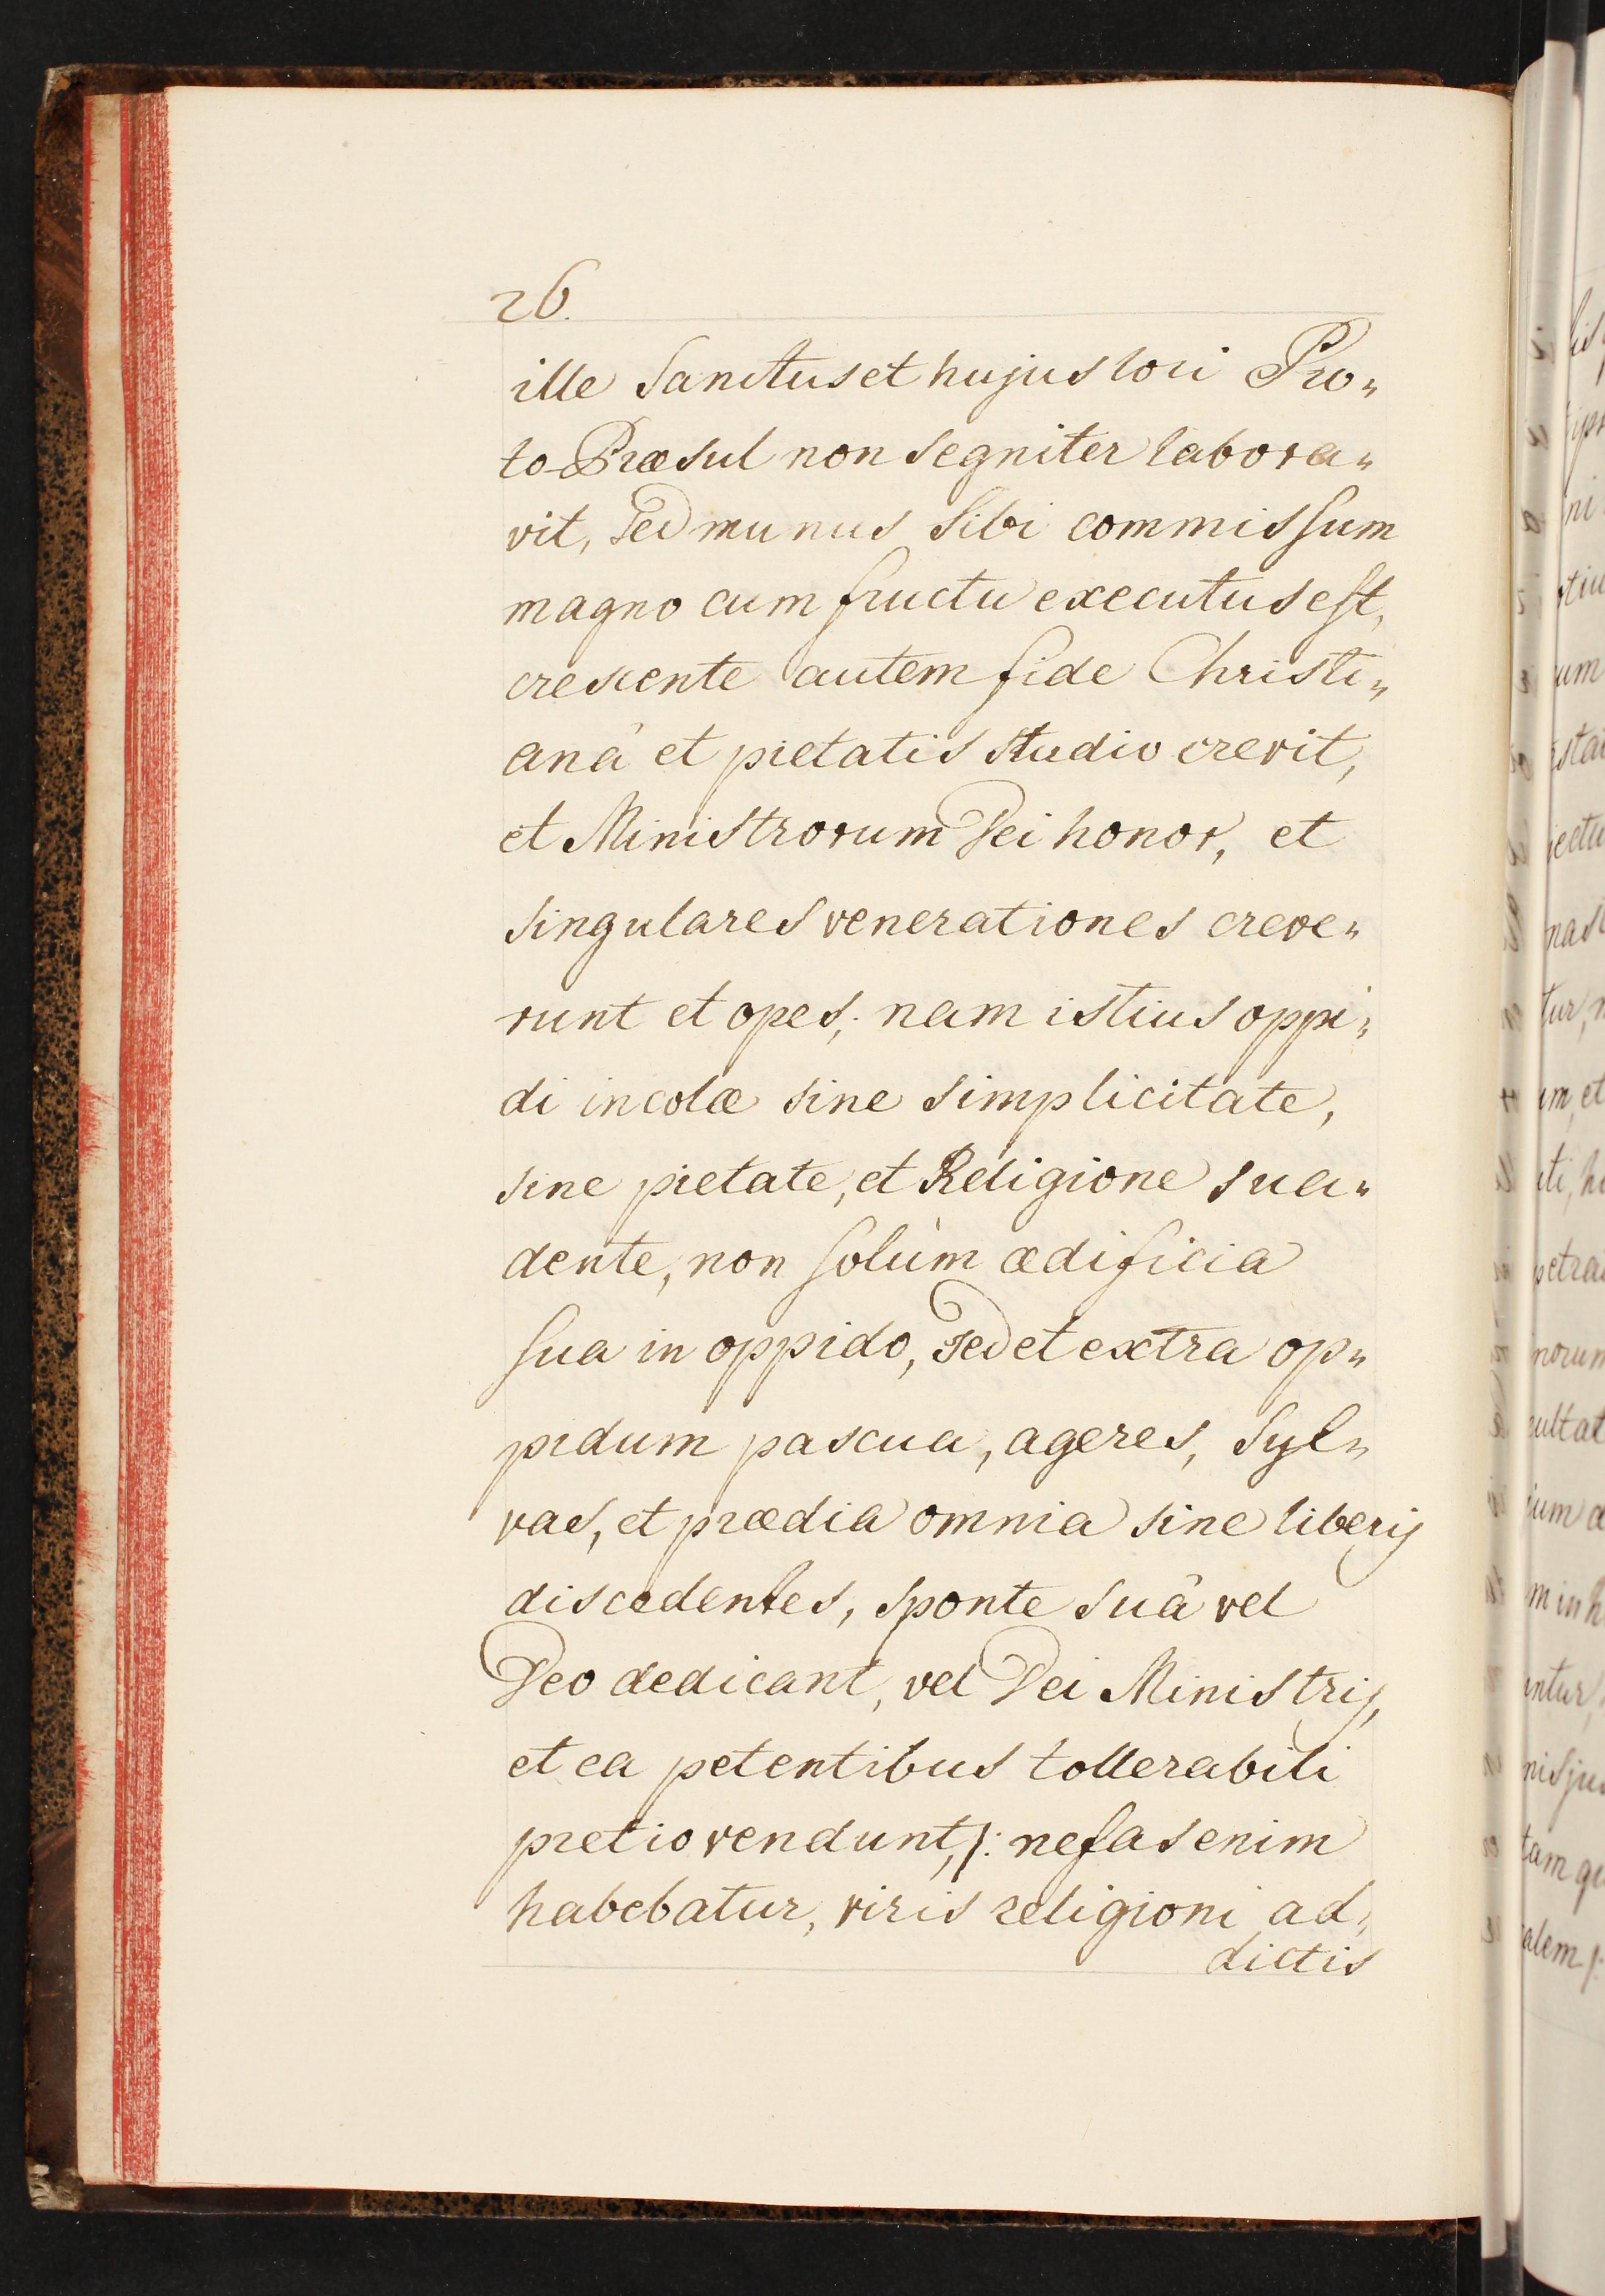 26.
ille Sanctus et hujus loci Pro„
to-Præsul non segniter labora„
vit, sed munus sibi commissum
magno cum fructu executus est,
crescente autem fide Christi„
anâ et pietatis studio crevit,
et Ministrorum Dei honor, et
singulares venerationes creve„
runt et opes; nam istius oppi„
di incolæ sine simplicitate,
sine pietate, et Religione sua„
dente, non solùm ædificia
sua in oppido, sed et extra op„
pidum pascua, ageres, Syl„
vas, et prædia omnia sine liberis
discedentes, sponte suâ vel
Deo dedicant, vel Dei Ministris,
et ea petentibus tollerabili
pretio vendunt, /: nefas enim
habebatur, viris religioni ad„
dictis